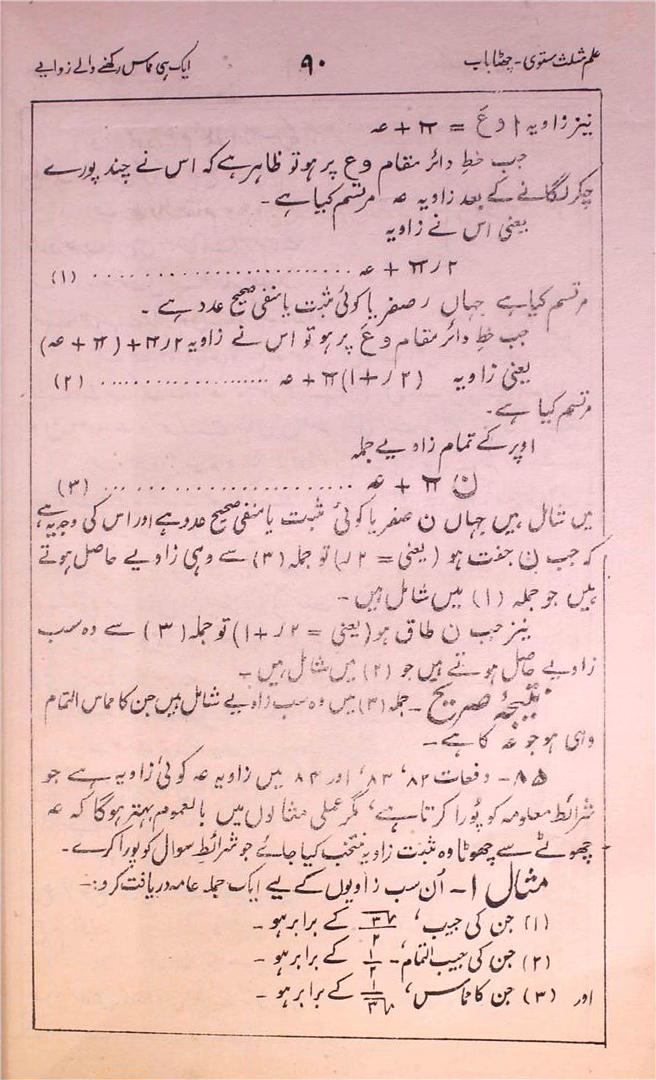 علم مثلث ستوی - چھٹا باب ۹۰ ایک ہی مماس رکھنے والے زاویے
نیز زاویہ ا و عَ = π + عہ
جب خطِ دائر مقام و ع پر ہو تو ظاہر ہے کہ اس نے چند پورے
چکر لگانے کے بعد زاویہ عہ مرتسم کیا ہے ۔
یعنی اس نے زاویہ
۲ رπ + عہ .................... (۱)
مرتسم کیا ہے جہاں ر صفر یا کوئی مثبت یا منفی صحیح عدد ہے ۔
جب خطِ دائر مقام و عَ پر ہو تو اس نے زاویہ ۲ رπ + (π + عہ)
یعنی زاویہ (۲ ر + ۱) π + عہ .................... (۲)
مرتسم کیا ہے ۔
اوپر کے تمام زاویے جملہ
ن π + عہ .................... (۳)
میں شامل ہیں جہاں ن صفر یا کوئی مثبت یا منفی صحیح عدد ہے اور اس کی وجہ یہ ہے
کہ جب ن جفت ہو (یعنی = ۲ ر) تو جملہ (۳) سے وہی زاویے حاصل ہوتے
ہیں جو جملہ (۱) میں شامل ہیں ۔
نیز جب ن طاق ہو (یعنی = ۲ ر + ۱) تو جملہ (۳) سے وہ سب
زاویے حاصل ہوتے ہیں جو (۲) میں شامل ہیں ۔
نتیجۂ صریح ۔ جملہ (۳) میں وہ سب زاویے شامل ہیں جن کا مماس التمام
وہی ہو جو عہ کا ہے ۔
۸۵ ۔ دفعات ۸۲، ۸۳، اور ۸۴ میں زاویہ عہ کوئی زاویہ ہے جو
شرائط معلومہ کو پورا کرتا ہے، مگر عملی مثالوں میں بالعموم بہتر ہوگا کہ عہ
چھوٹے سے چھوٹا وہ مثبت زاویہ منتخب کیا جائے جو شرائطِ سوال کو پورا کرے ۔
مثال ۱ ۔ اُن سب زاویوں کے لیے ایک جملہ عامہ دریافت کرو :۔
(۱) جن کی جیب، √۳/۲ کے برابر ہو ۔
(۲) جن کی جیب التمام، - ۱/۲ کے برابر ہو ۔
اور (۳) جن کا مماس، ۱/√۳ کے برابر ہو ۔